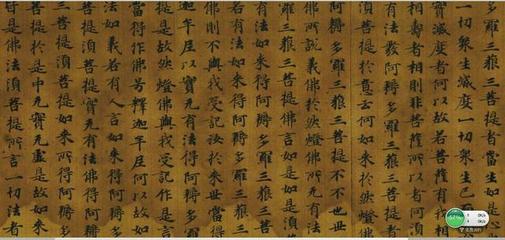 多羅三藐三菩提者當生如是心
一切衆生滅度一切衆生已
實滅度者何以故若菩薩有
壽者相則非菩薩所以者何
有法發阿耨多羅三藐三菩提者
菩提於意云何如來於然燈佛
阿耨多羅三藐三菩提不不也世
佛所說義佛於然燈佛所无有法
三藐三菩提佛言如是如是須
有法如來得阿耨多羅三
若有法如來得阿耨多羅三
佛則不與我受記汝於來世當
迦牟尼以實无有法得阿耨多羅
是故然燈佛與我受記作是言
當得作佛号釋迦牟尼何以故如
法如義若有人言如來得阿耨多
提須菩提實无有法佛得阿耨多
菩提須菩提如來所得阿耨多
菩提於是中无實无虛是故如來
是佛法須菩提所言一切法者